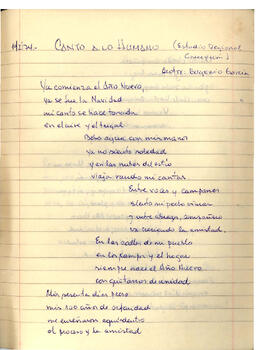 CANTO A LO HUMANO (Estudio Regional
Concepción)
Eugenio García
Ya comienza el Año Nuevo,
ya se fue la Navidad
mi canto se hace tonada
en el aire y el trigal
Debo aquí con mis manos
ya no siento soledad
y en las nubes del estío
viaja mi cantar
Entre voces y campanas
siento mi pecho vibrar
y entre abrazos,
va creciendo la amistad.
En las calles de mi pueblo
en los campos y el hogar
siempre nace el Año Nuevo
con guitarras de unidad
días
mis 100 años de
me enseñaron
el proceso y la amistad